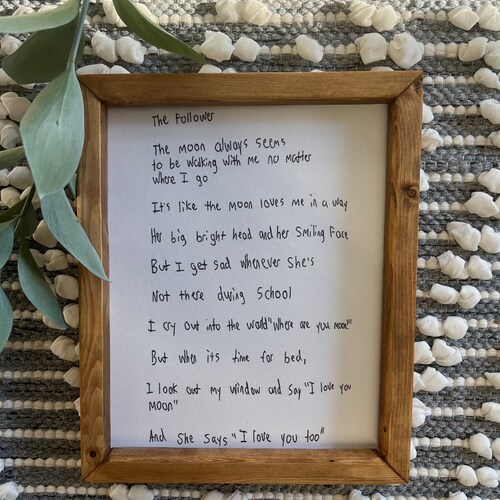 The Follower
The moon always seems
to be walking with me no matter
where I go
It's like the moon loves me in a way
Her big bright head and her smiling face
But I get sad whenever she's
Not there during school
I cry out into the world "where are you moon?"
But when its time for bed,
I look out my window and say "I love you
moon"
And she says "I love you too"